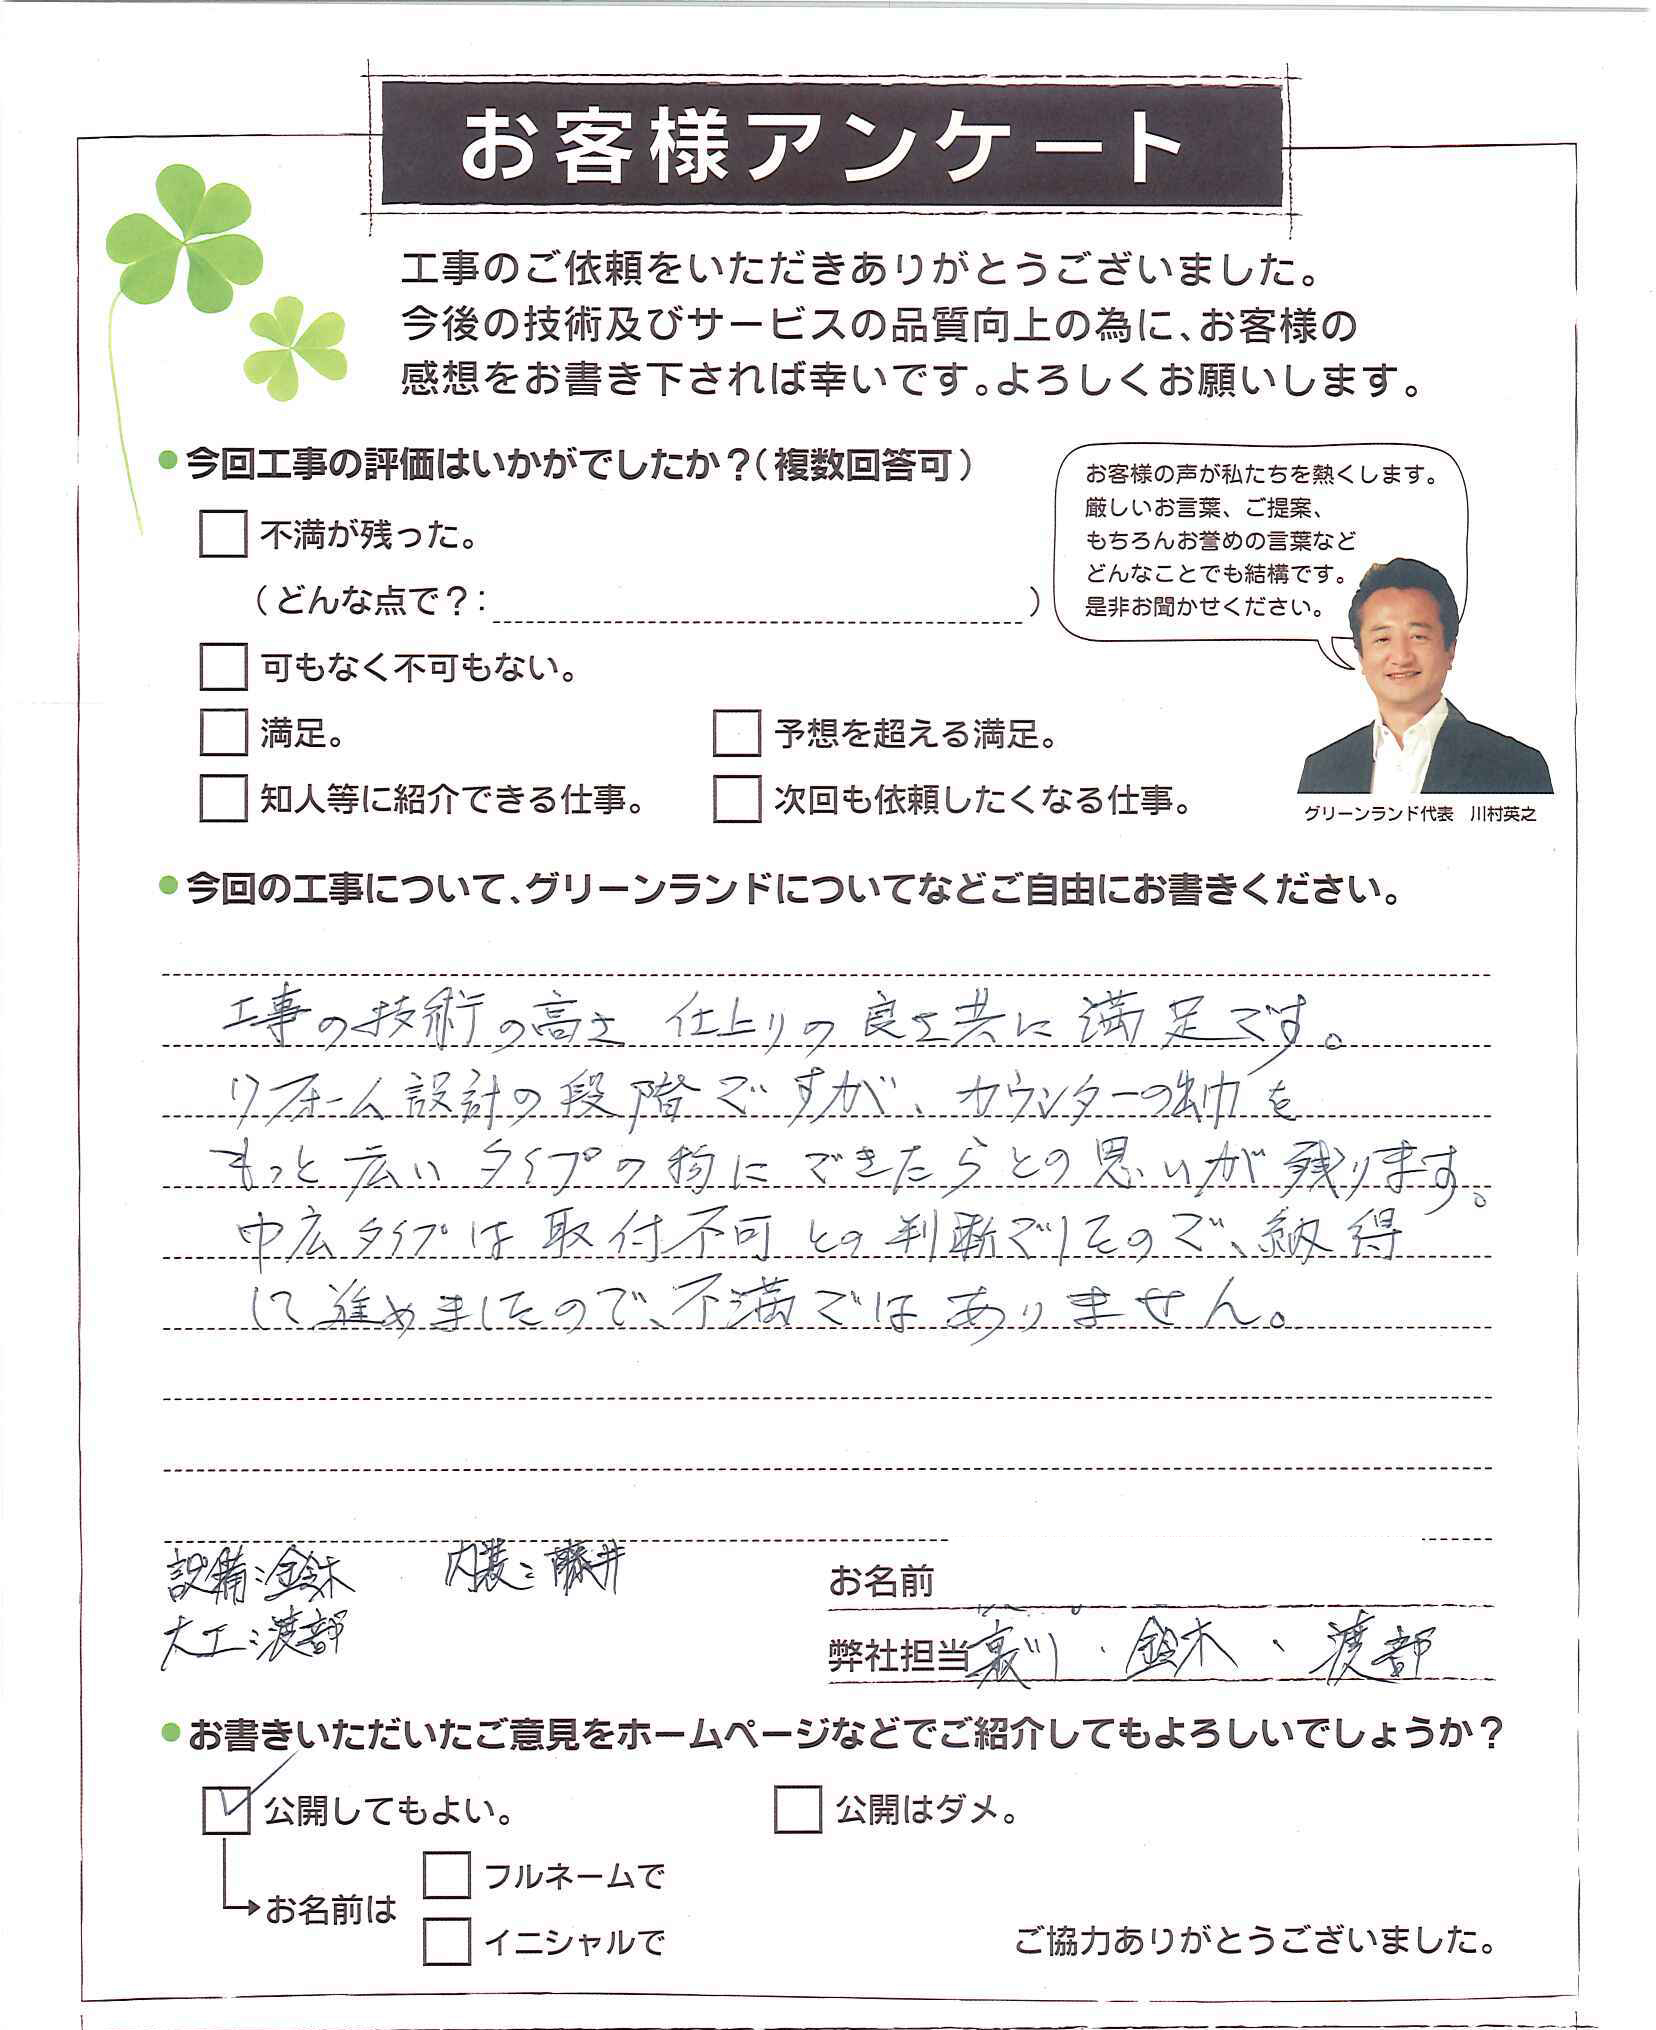 お客様アンケート
工事のご依頼をいただきありがとうございました。
今後の技術及びサービスの品質向上の為に、お客様の
感想をお書き下されば幸いです。よろしくお願いします。
今回工事の評価はいかがでしたか？（複数回答可）
不満が残った。
（どんな点で？：　　　　）
可もなく不可もない。
満足。
予想を超える満足。
知人等に紹介できる仕事。
次回も依頼したくなる仕事。
お客様の声が私たちを熱くします。
厳しいお言葉、ご提案、
もちろんお誉めの言葉など
どんなことでも結構です。
是非お聞かせください。
グリーンランド代表　川村英之
今回の工事について、グリーンランドについてなどご自由にお書きください。
工事の技術の高さ 仕上りの良さ共に満足です。
リフォーム設計の段階ですが、カウンターの出巾を
もっと広いタイプの物にできたらとの思いが残ります。
巾広タイプは取付不可との判断でしたので、納得
して進めましたので、不満ではありません。
設備：鈴木　内装：藤井
大工：渡部
お名前
弊社担当 川・鈴木・渡部
お書きいただいたご意見をホームページなどでご紹介してもよろしいでしょうか？
公開してもよい。
公開はダメ。
お名前は
フルネームで
イニシャルで
ご協力ありがとうございました。